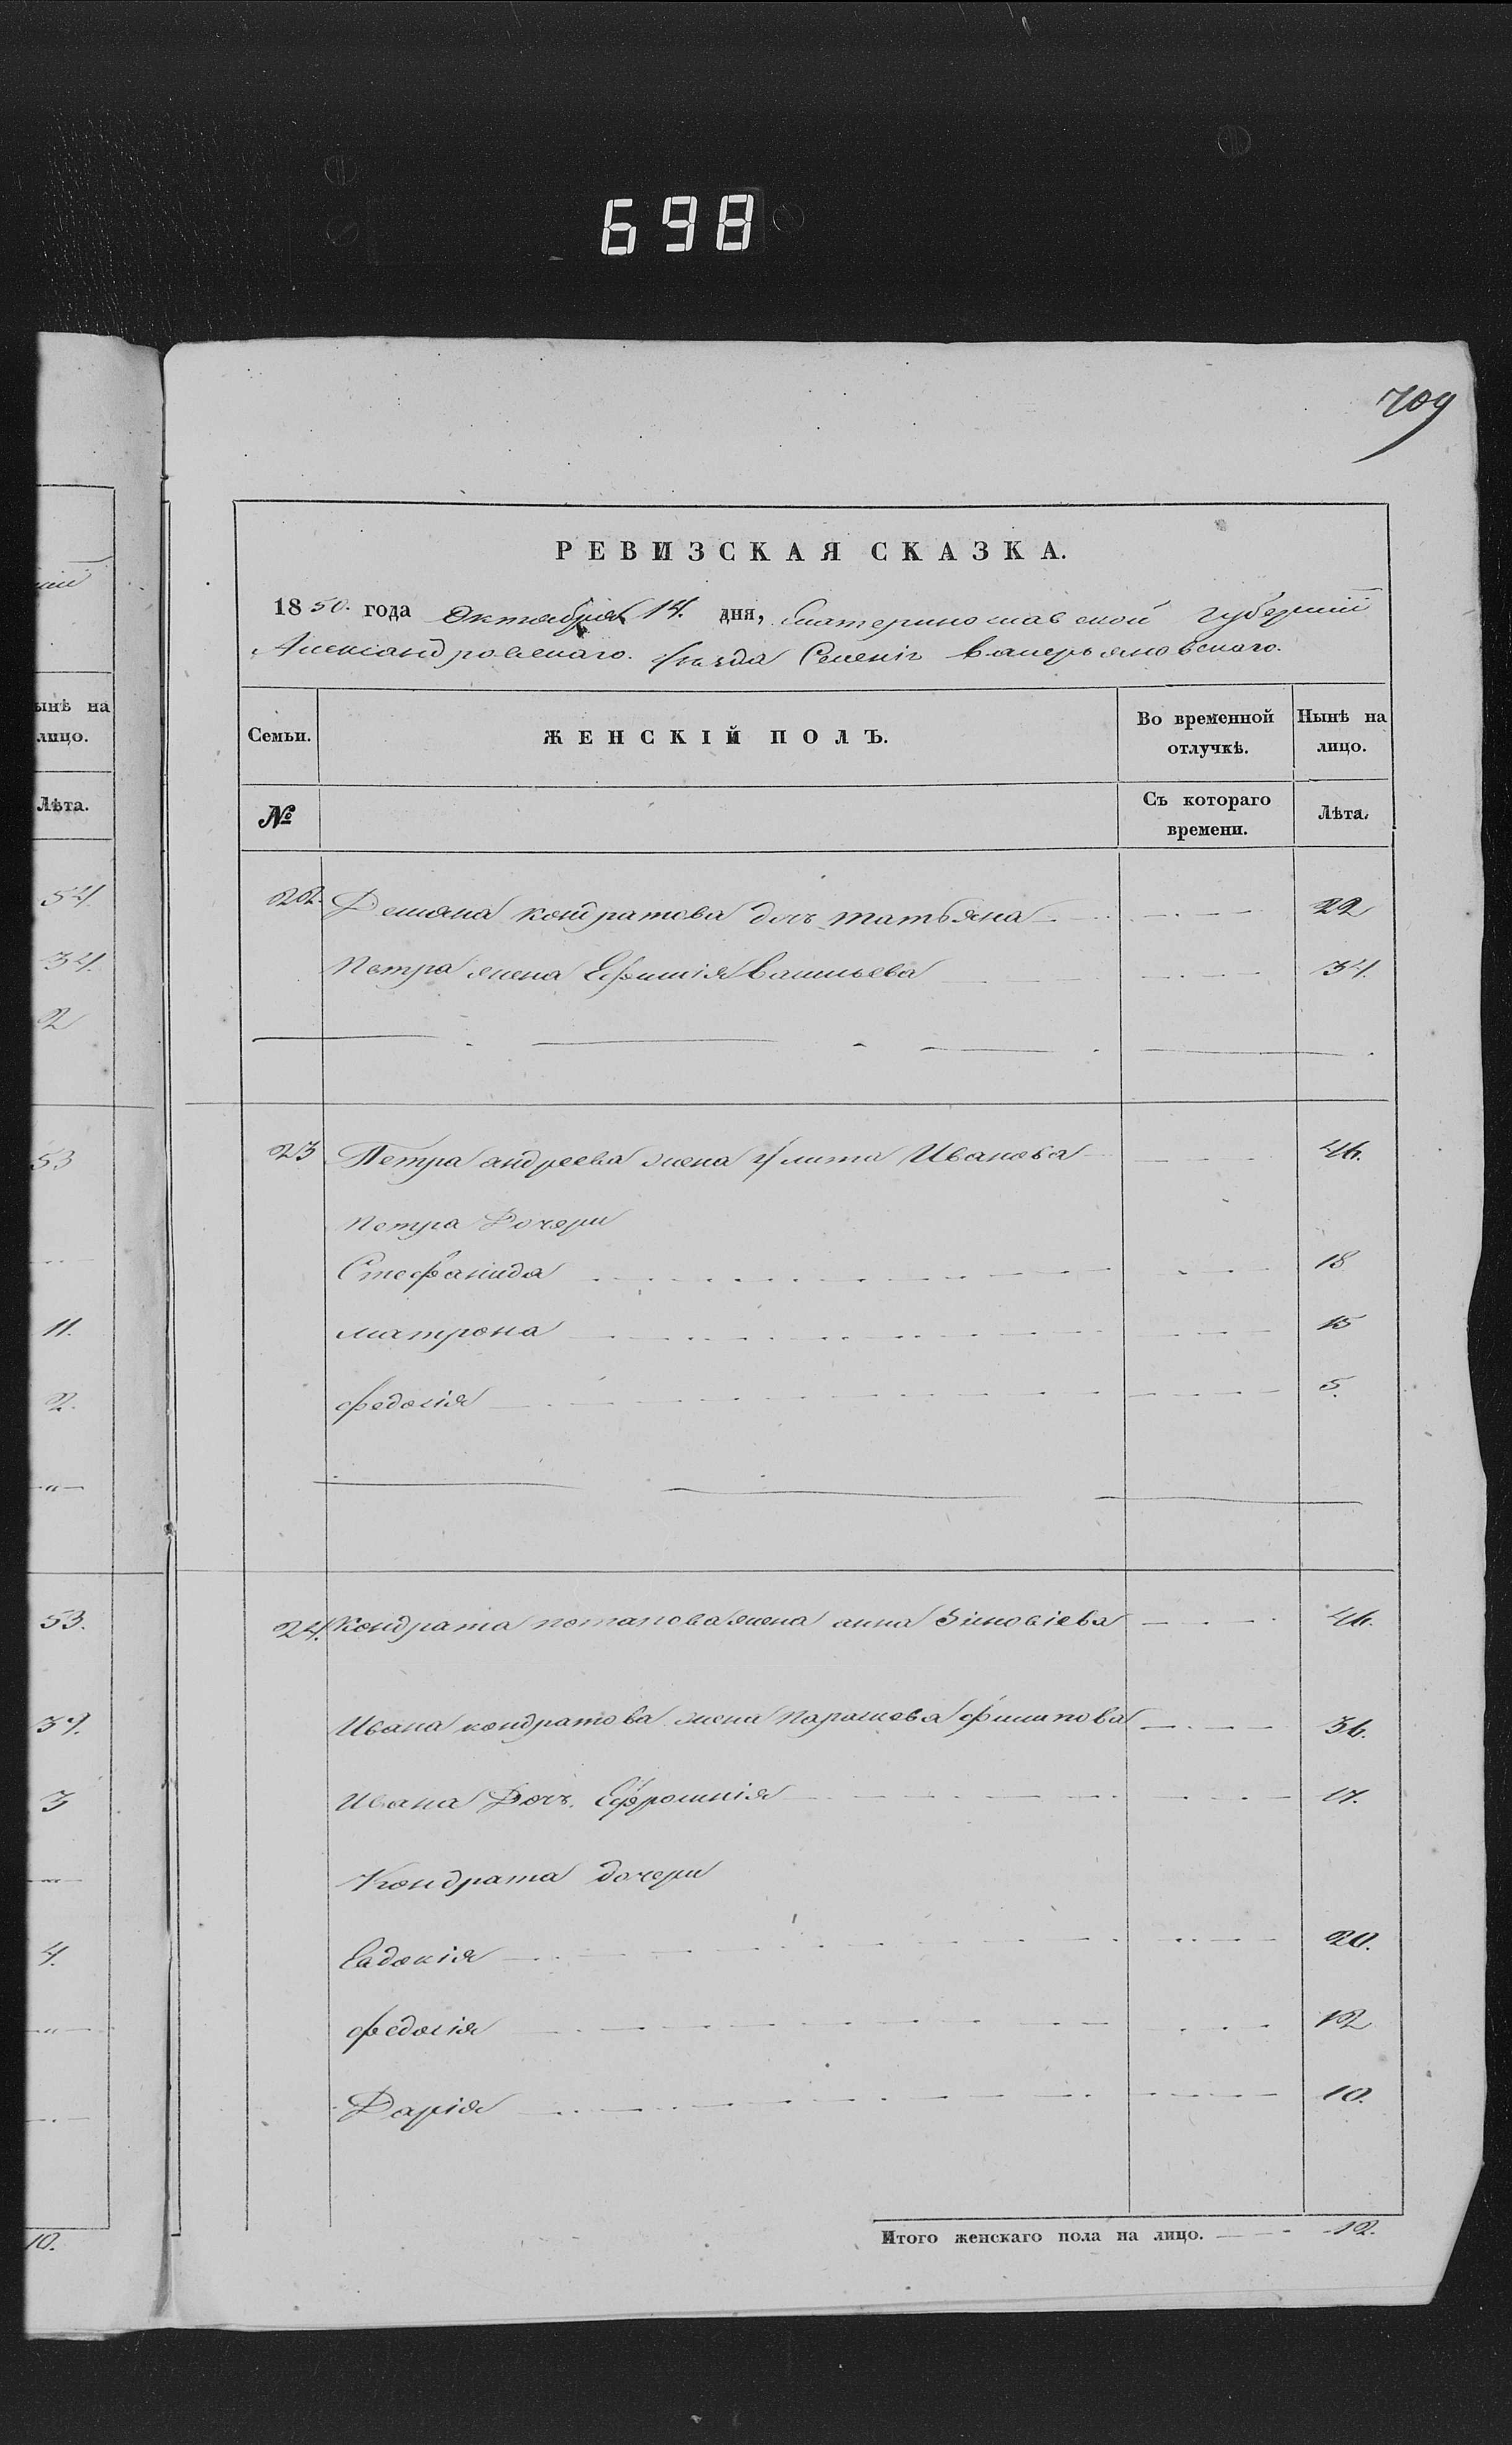 698
709
РЕВИЗСКАЯ СКАЗКА.
1850. года Октября 14. дня, Екатеринославской губерніи
Александровскаго. Уезда Селенія Валерьяновскаго.
Семьи. ЖЕНСКІЙ ПОЛЪ. Во временной отлучкѣ. Нынѣ на лицо.
№ Съ котораго времени. Лѣта.
22. Демяна кондратова дочь татьяна 22
Петра жена Ефимія Васильева 34.
23 Петра андреева жена Улита Иванова 46.
Петра Дочери
Стефанида 18
матрона 15
федосія 5.
24. Кондрата потапова жена анна Зіновіева 46.
Ивана кондратова жена Параскева филипова 36.
Ивана Дочь. Ефросинія 17.
Кондрата дочери
Евдокія 20.
федосія 12
Дарія 10.
Итого женскаго пола на лицо. 12.
ынѣ на
лицо.
Лѣта.
54.
34.
2
53
11.
2.
53.
37.
3
4.
10.